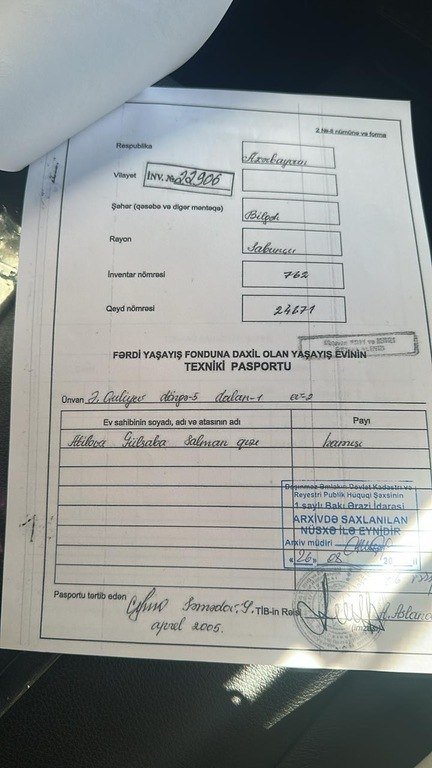 2 №-li nümunə və forma
Respublika Azərbaycan
Vilayət İNV. № 22906
Şəhər (qəsəbə və digər məntəqə) Bilgəh
Rayon Sabunçu
İnventar nömrəsi 762
Qeyd nömrəsi 24671
FƏRDİ YAŞAYIŞ FONDUNA DAXİL OLAN YAŞAYIŞ EVİNİN
TEXNİKİ PASPORTU
Ünvan Ə. Quliyev döngə-5 dalan-1 ev-2
Ev sahibinin soyadı, adı və atasının adı Payı
Gülzaba Salman qızı
Daşınmaz Əmlakın Dövlət Kadastrı və
Reyestri Publik Hüquqi Şəxsinin
1 saylı Bakı Ərazi İdarəsi
ARXİVDƏ SAXLANILAN
NÜSXƏ İLƏ EYNİDİR
Arxiv müdiri
«26» 08 20
Pasportu tərtib edən TİB-in Rəisi
aprel 2005.